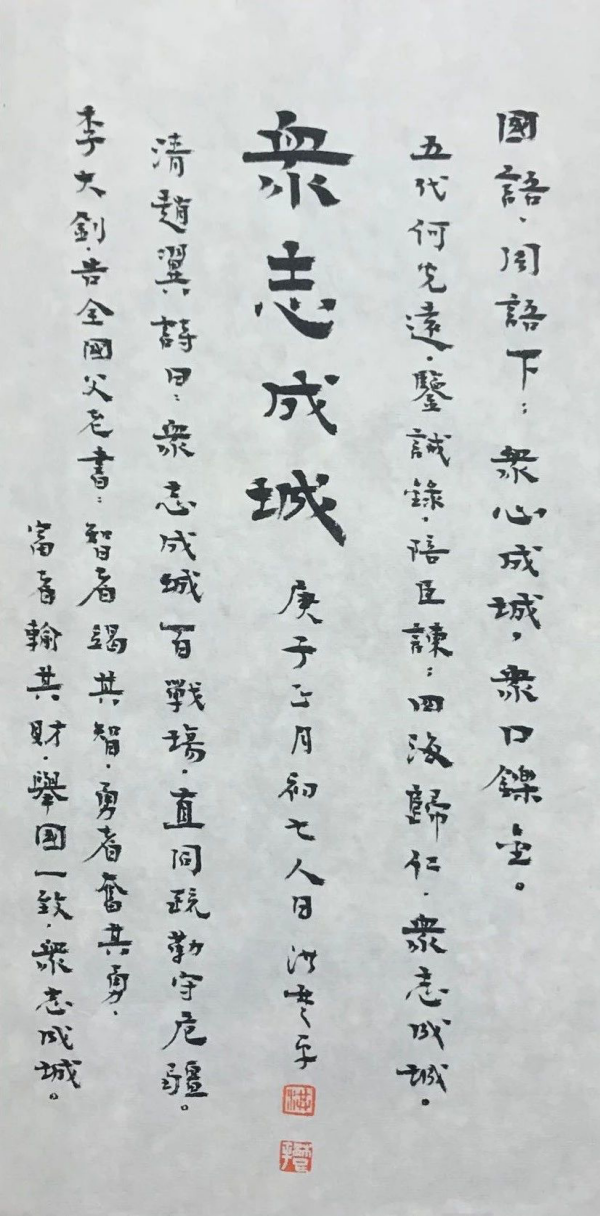 國語·周語下：衆心成城，衆口鑠金。
五代何光遠·鑒誡錄·陪臣諫：四海歸仁，衆志成城。
衆志成城
庚子正月初七人日洪楚平
洪
清趙翼詩曰：衆志成城百戰場，直同疏勒守危疆。
李大釗·告全國父老書：智者竭其智，勇者奮其勇，
富者輸其財，舉國一致，衆志成城。